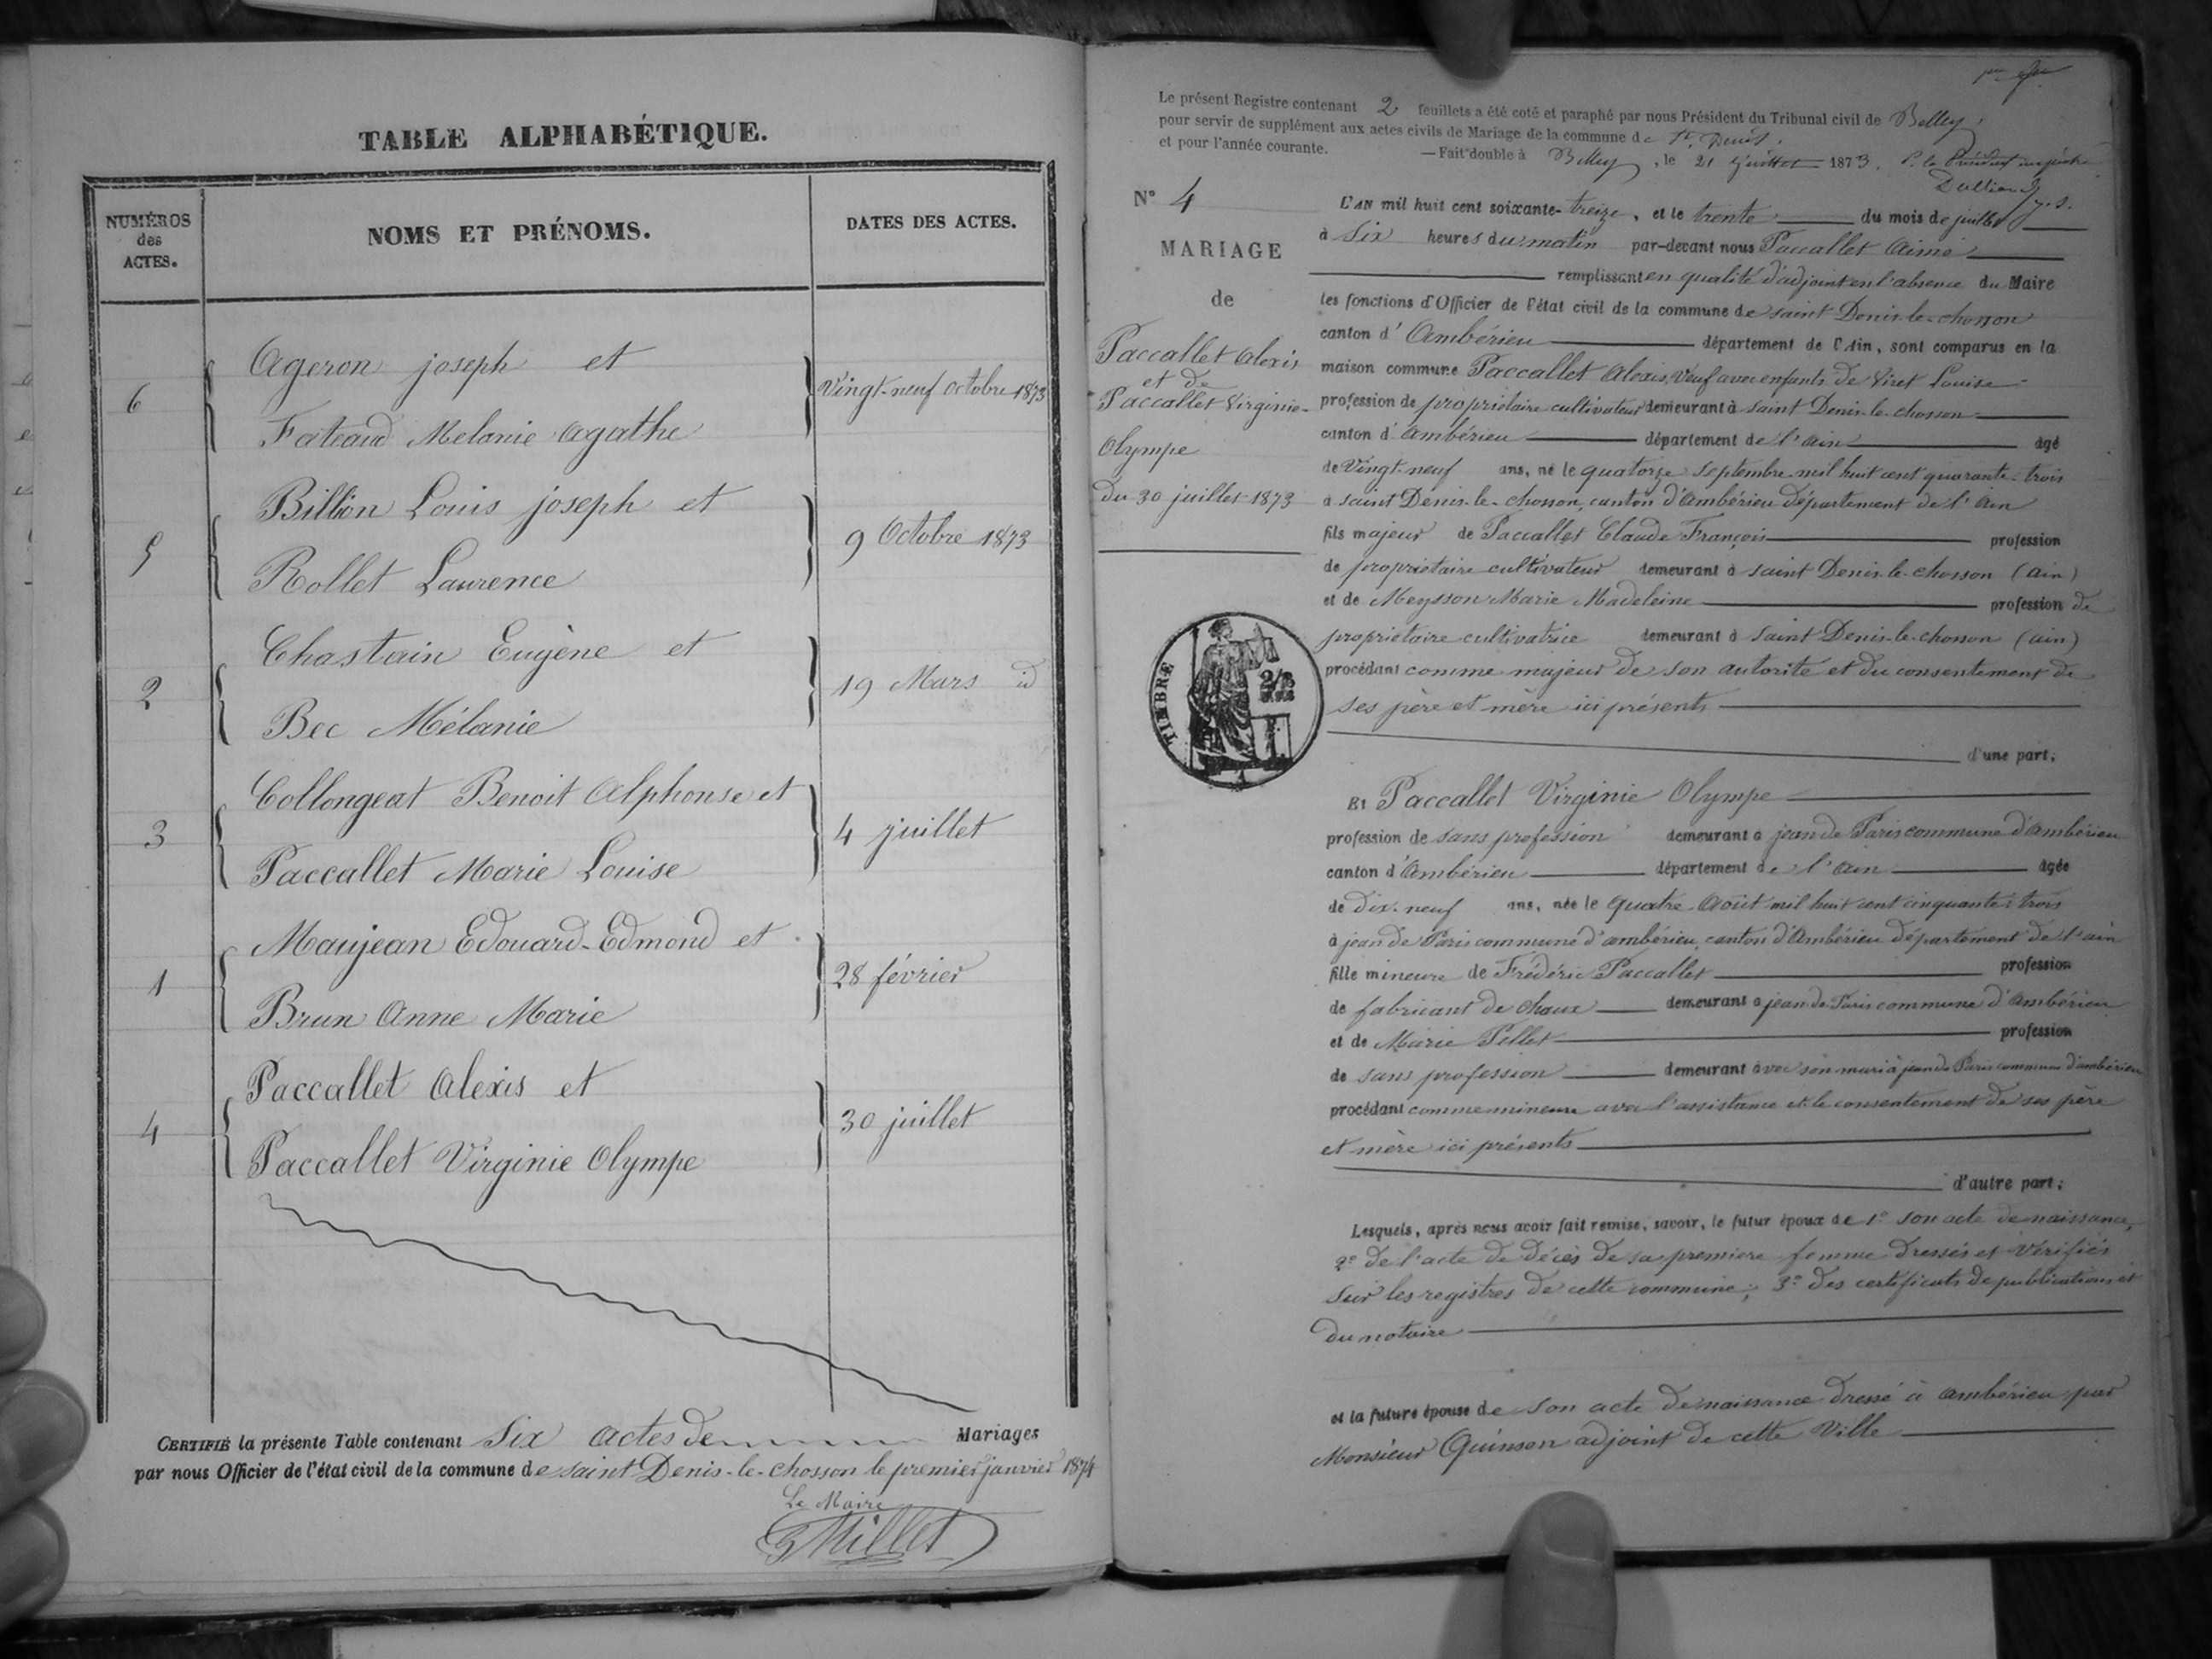 TABLE ALPHABÉTIQUE.
NUMÉROS
des
ACTES.
NOMS ET PRÉNOMS.
DATES DES ACTES.
Ageron joseph et
6
Vingt-neuf Octobre 1873
Fateaud Melanie Agathe
Billion Louis joseph et
5
9 Octobre 1873
Rollet Laurence
Chastain Eugène et
2
19 Mars id
Bec Mélanie
Collongeat Benoit Alphonse et
3
4 juillet
Paccallet Marie Louise
Maujean Edouard-Edmond et
1
28 février
Brun Anne Marie
Paccallet Alexis et
4
30 juillet
Paccallet Virginie Olympe
CERTIFIÉ la présente Table contenant Six actes de Mariages
par nous Officier de l'état civil de la commune de saint Denis-le-chosson le premier janvier 1874
Le Maire
Millet
Le présent Registre contenant 2 feuillets a été coté et paraphé par nous Président du Tribunal civil de Belley,
pour servir de supplément aux actes civils de Mariage de la commune de St. Denis.
et pour l'année courante. — Fait double à Belley, le 21 Juillet 1873.
N° 4
MARIAGE
de
Paccallet Alexis
et de
Paccallet Virginie-
Olympe
du 30 juillet 1873
TIMBRE
L'AN mil huit cent soixante-treize, et le trente du mois de juillet
à Six heures du matin par-devant nous Paccallet Aimé
remplissant en qualité d'adjoint en l'absence du Maire
les fonctions d'Officier de l'état civil de la commune de saint Denis-le-chosson
canton d'Ambérieu département de l'Ain, sont comparus en la
maison commune Paccallet Alexis, Veuf avec enfants de Viret Louise
profession de propriétaire cultivateur demeurant à saint Denis-le-chosson
canton d'Ambérieu département de l'ain âgé
de Vingt-neuf ans, né le quatorze septembre mil huit cent quarante-trois
à saint Denis-le-chosson, canton d'Ambérieu département de l'Ain
fils majeur de Paccallet Claude François profession
de propriétaire cultivateur demeurant à saint Denis-le-chosson (ain)
et de Meysson Marie Madeleine profession de
propriétaire cultivatrice demeurant à saint Denis-le-chosson (ain)
procédant comme majeur de son autorité et du consentement de
ses père et mère ici présents
d'une part;
Et Paccallet Virginie Olympe
profession de sans profession demeurant à jean de Paris commune d'Ambérieu
canton d'Ambérieu département de l'ain âgée
de dix-neuf ans, née le quatre Août mil huit cent cinquante-trois
à jean de Paris commune d'ambérieu, canton d'Ambérieu département de l'ain
fille mineure de Frédéric Paccallet profession
de fabricant de chaux demeurant à jean de Paris commune d'Ambérieu
et de Marie Pellet profession
de sans profession demeurant avec son mari à jean de Paris commune d'ambérieu
procédant comme mineure avec l'assistance et le consentement de ses père
et mère ici présents
d'autre part;
Lesquels, après nous avoir fait remise, savoir, le futur époux de 1° son acte de naissance,
2° de l'acte de décès de sa première femme dressés et vérifiés
sur les registres de cette commune; 3° des certificats de publications et
du notaire
et la future épouse de son acte de naissance dressé à ambérieu par
Monsieur Quinson adjoint de cette Ville